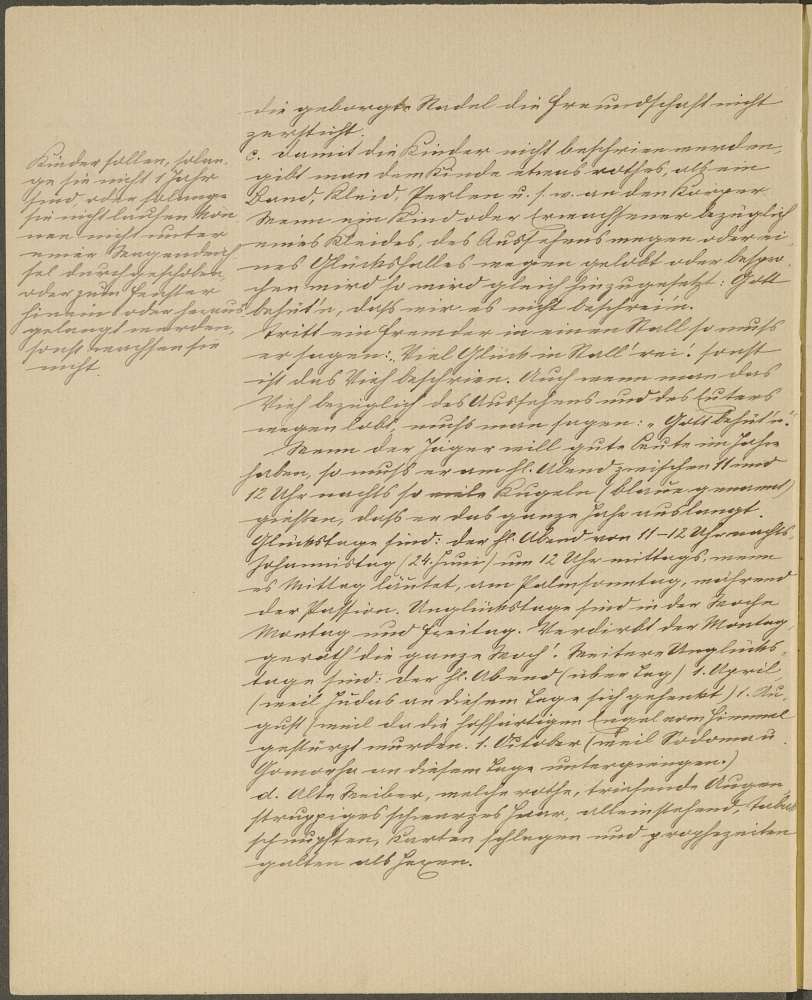 die geborgte Nadel die Freundschaft nicht
zersticht.
c. Damit die Kinder nicht beschrien werden,
gibt man dem Kinde etwas rothes, als ein
Band, Kleid, Perlen u. s. w. an den Körper.
Wenn ein Kind oder Erwachsener bezüglich
eines Kleides, des Aussehens wegen oder ei-
nes Glücksfalles wegen gelobt oder bespro-
chen wird so wird gleich hinzugesetzt: Gott
behüt'n, dass wir es nicht beschrei'n.
Tritt ein Fremder in einen Stall so muss
er sagen: „Viel Glück in Stall 'rei'! sonst
ist das Vieh beschrien. Auch wenn man das
Vieh bezüglich des Aussehens und des Euters
wegen lobt, muss man sagen: „Gott behüt'n."
Wenn der Jäger will gute Beute im Jahre
haben, so muss er am hl. Abend zwischen 11 und
12 Uhr nachts so viele Kugeln (blaue genannt)
giessen, dass er das ganze Jahr auslangt.
Glückstage sind: der hl. Abend von 11-12 Uhr nachts,
Johannistag (24. Juni) um 12 Uhr mittags, wenn
es Mittag läutet, am Palmsonntag, während
der Passion. Unglückstage sind in der Woche
Montag und Freitag. Verdirbt der Montag,
geräth' die ganze Woch'. Weitere Unglücks-
tage sind: der hl. Abend (über Tag) 1. April,
(weil Judas an diesem Tage sich gehenkt) 1. Au-
gust (weil da die hoffärtigen Engel vom Himmel
gestürzt wurden. 1. October (weil Sodoma u.
Gomorha an diesem Tage untergiengen.)
d. Alte Weiber, welche rothe, triefende Augen
struppiges schwarzes Haar, alleinstehend, Tabak
schnupften, Karten schlagen und prophezeiten
galten als Hexen.
Kinder sollen, solan-
ge sie nicht 1 Jahr
sind, oder solange
sie nicht laufen kön-
nen nicht unter
einer Wagendeich-
sel durchgeschoben,
oder zum Fenster
hinein oder heraus
gelangt werden,
sonst wachsen sie
nicht.